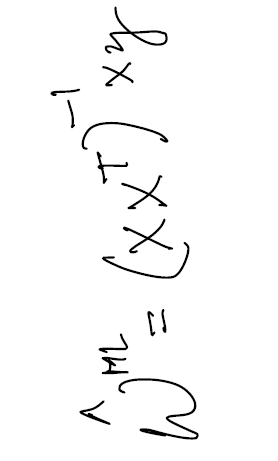 ŵ^ML = (X X^T)^-1 x y